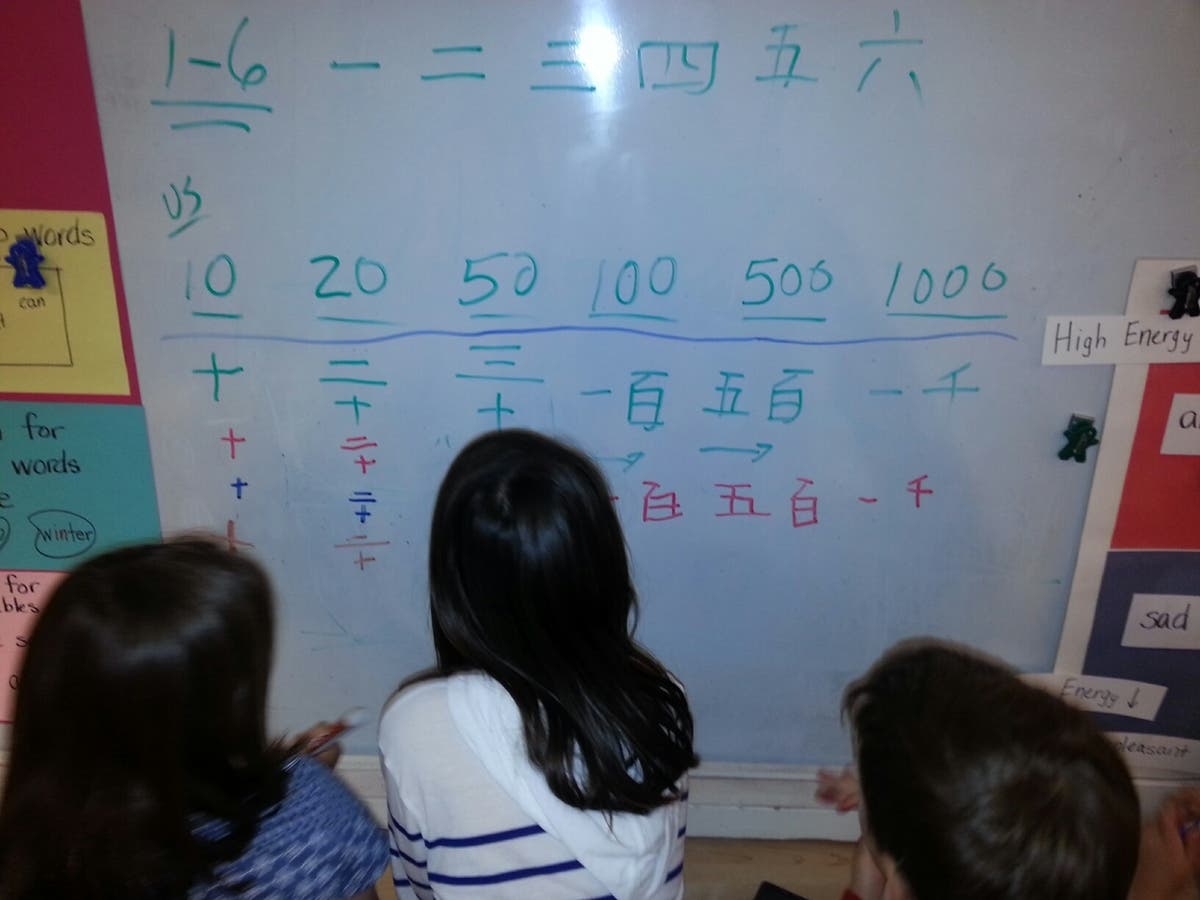 1-6 一 二 三 四 五 六
US
10 20 50 100 500 1000
十 二十 三十 一百 五百 一千
→ →
十 二十
十 二十
十 二十
一百 五百 一千
words
can
for
words
winter
for
High Energy
sad
Energy ↓
pleasant